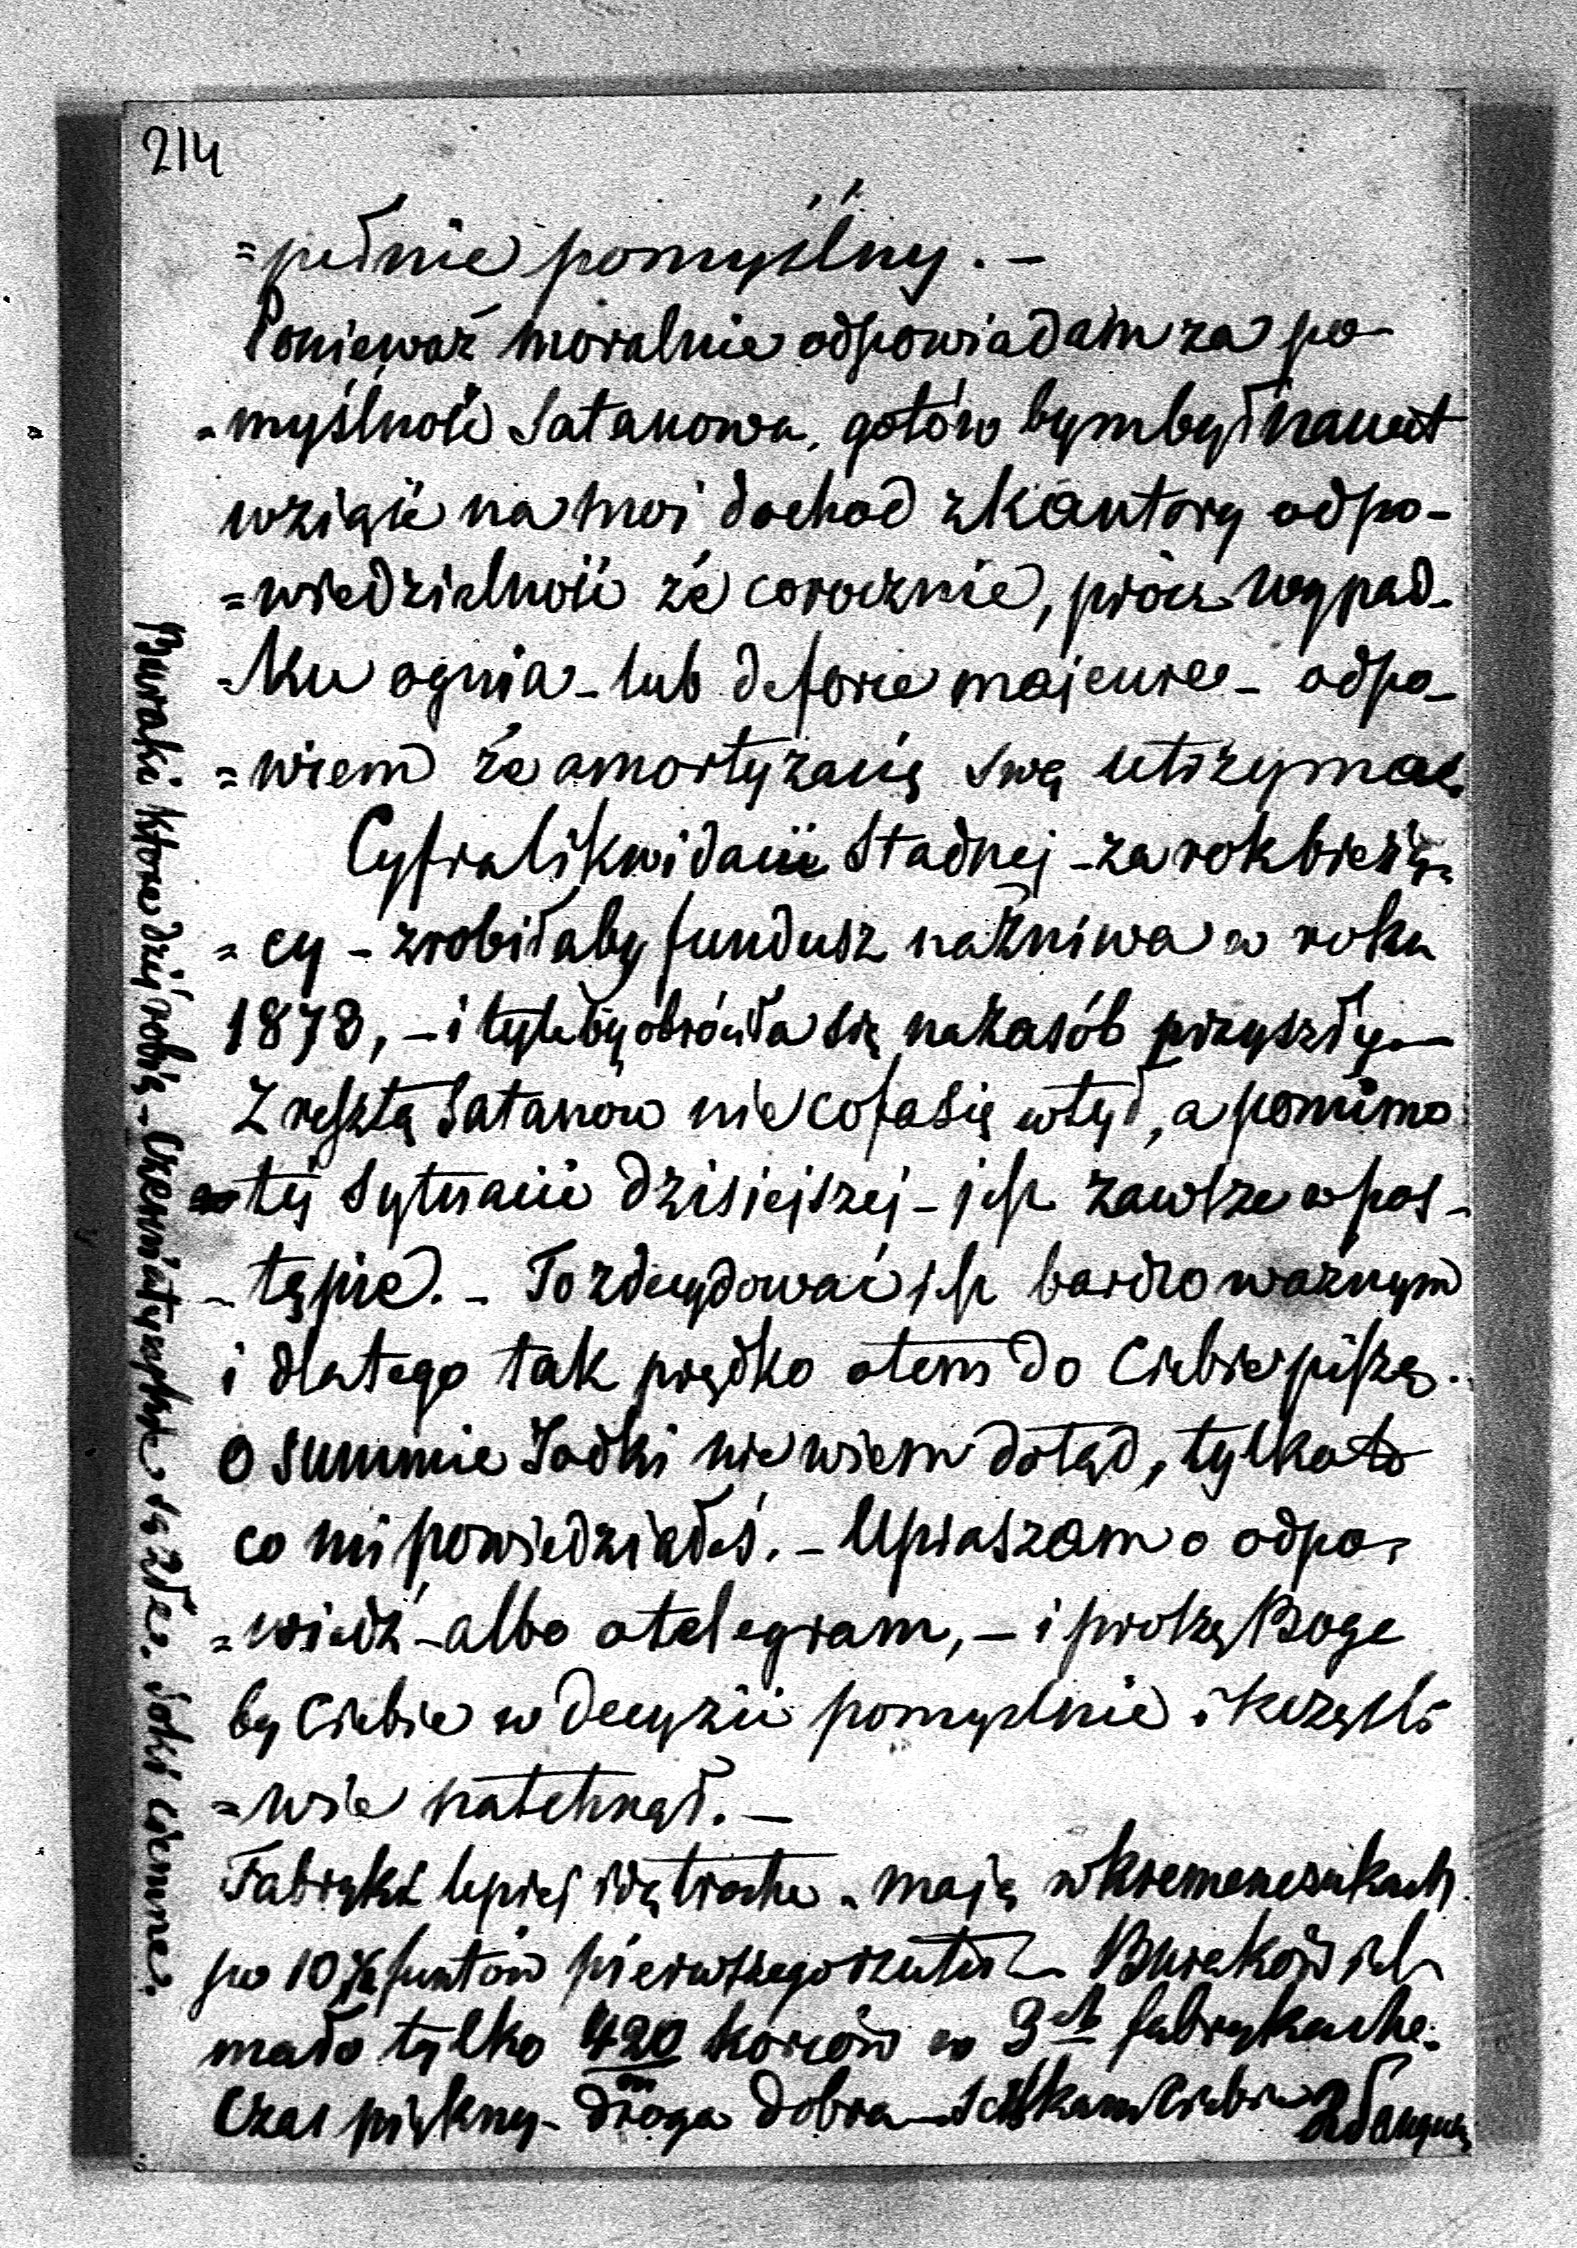 214
=pełnie pomyślny. –
Ponieważ moralnie odpowiadam za po-
-myślność Satanowa, gotów bym był nawet
wziąść na moi dochod z Kantory odpo-
=wiedzialność że corocznie, prócz wypad-
-ku ognia – lub de force majeure – odpo-
=wiem że amortyzacię swą utrzymać.
Cyfra likwidacii Stadnej – za rok bieżą-
=cy – zrobiłaby fundusz na żniwa w roku
1878, – i tyleby obróciła się na zasób przyszły –
Z resztą Satanow nie cofa się w tył, a pomimo
tej sytuacii dzisiejszej – jest zawsze w pos-
-tępie. – To zdecydować jest bardzo ważnym
i dlatego tak prędko o tem do Ciebie piszę.
O summie Jadki nie wiem dotąd, tylko to
co mi powiedziałeś. – Upraszam o odpo-
=wiedź – albo o telegram, – i proszę Boga
by Ciebie w decyzii pomyślnie i szczęśli
=wie natchnął. –
Fabryki lepiej idą troche – mają w kremenczukach
po 10 ½ funtów pierwszego rzutu – Buraków ich
mało tylko 420 korców w 3ch fabrykach.
Czas piękny – droga dobra – ściskam Ciebie
Buraki ktore dziś robią – są złe. Soki ciemne.